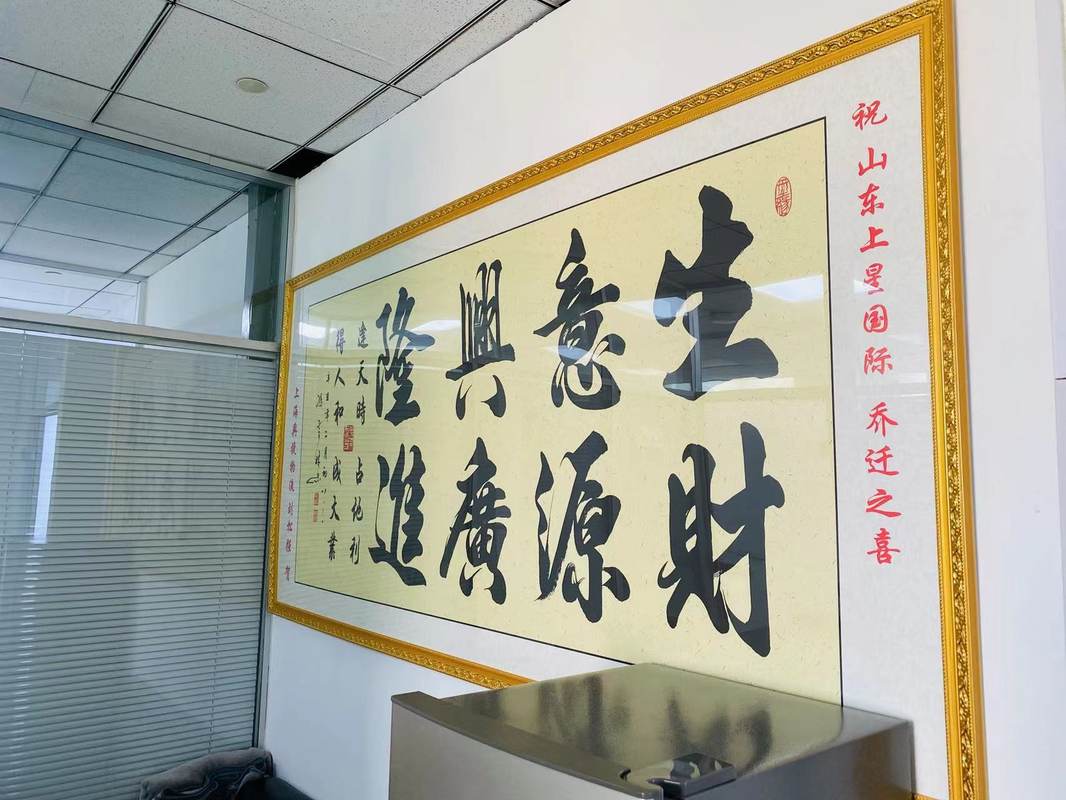 祝山东上星国际 乔迁之喜
生意興隆
財源廣進
天時 占地利
得人和 成大業
上海 物流 刘松 贺